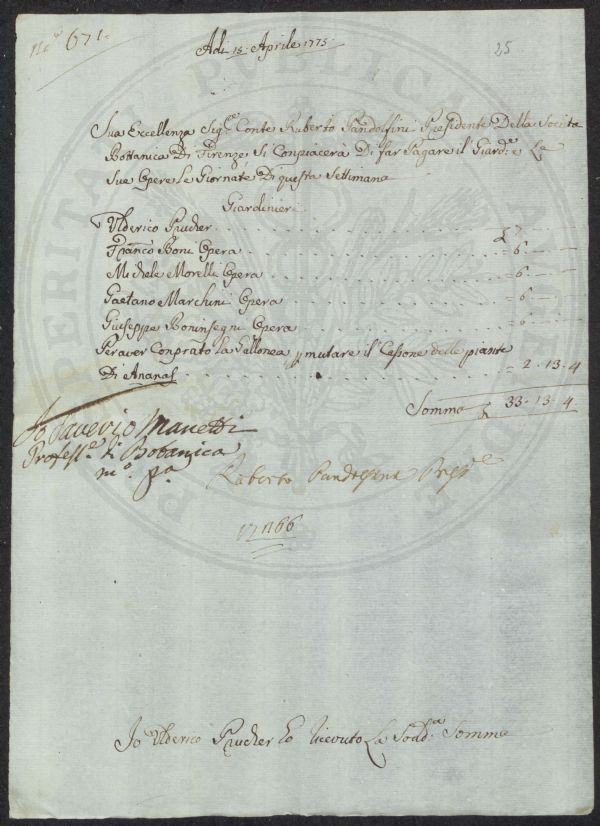 N.o 671.
Adi 15. Aprile 1775.
25
Sua Eccellenza Sig.re Conte Ruberto Pandolfini Presidente Della Societa
Bottanica Di Firenze, Si Conpiacerà Di far Pagare il Giard.e e Le
Sue Opere Le Giornate Di questa Settimana
Giardinieri
Ulderico Prucher £ 7
Franco Boni Opera = 6
Michele Morelli Opera = 6
Gaetano Marchini Opera = 6
Giuseppe Boninsegni Opera = 6
Per aver Conprato La Vallonea p mutare il Cassone delle piante
Di Ananas = 2. 13. 4
Somma £ 33. 13. 4
Io Saverio Manetti
Profess.e di Botanica
m.o p.a
Ruberto Pandolfini Pres.te
1166
Io Ulderico Prucher ho Riceuto La Sodd.a Somma